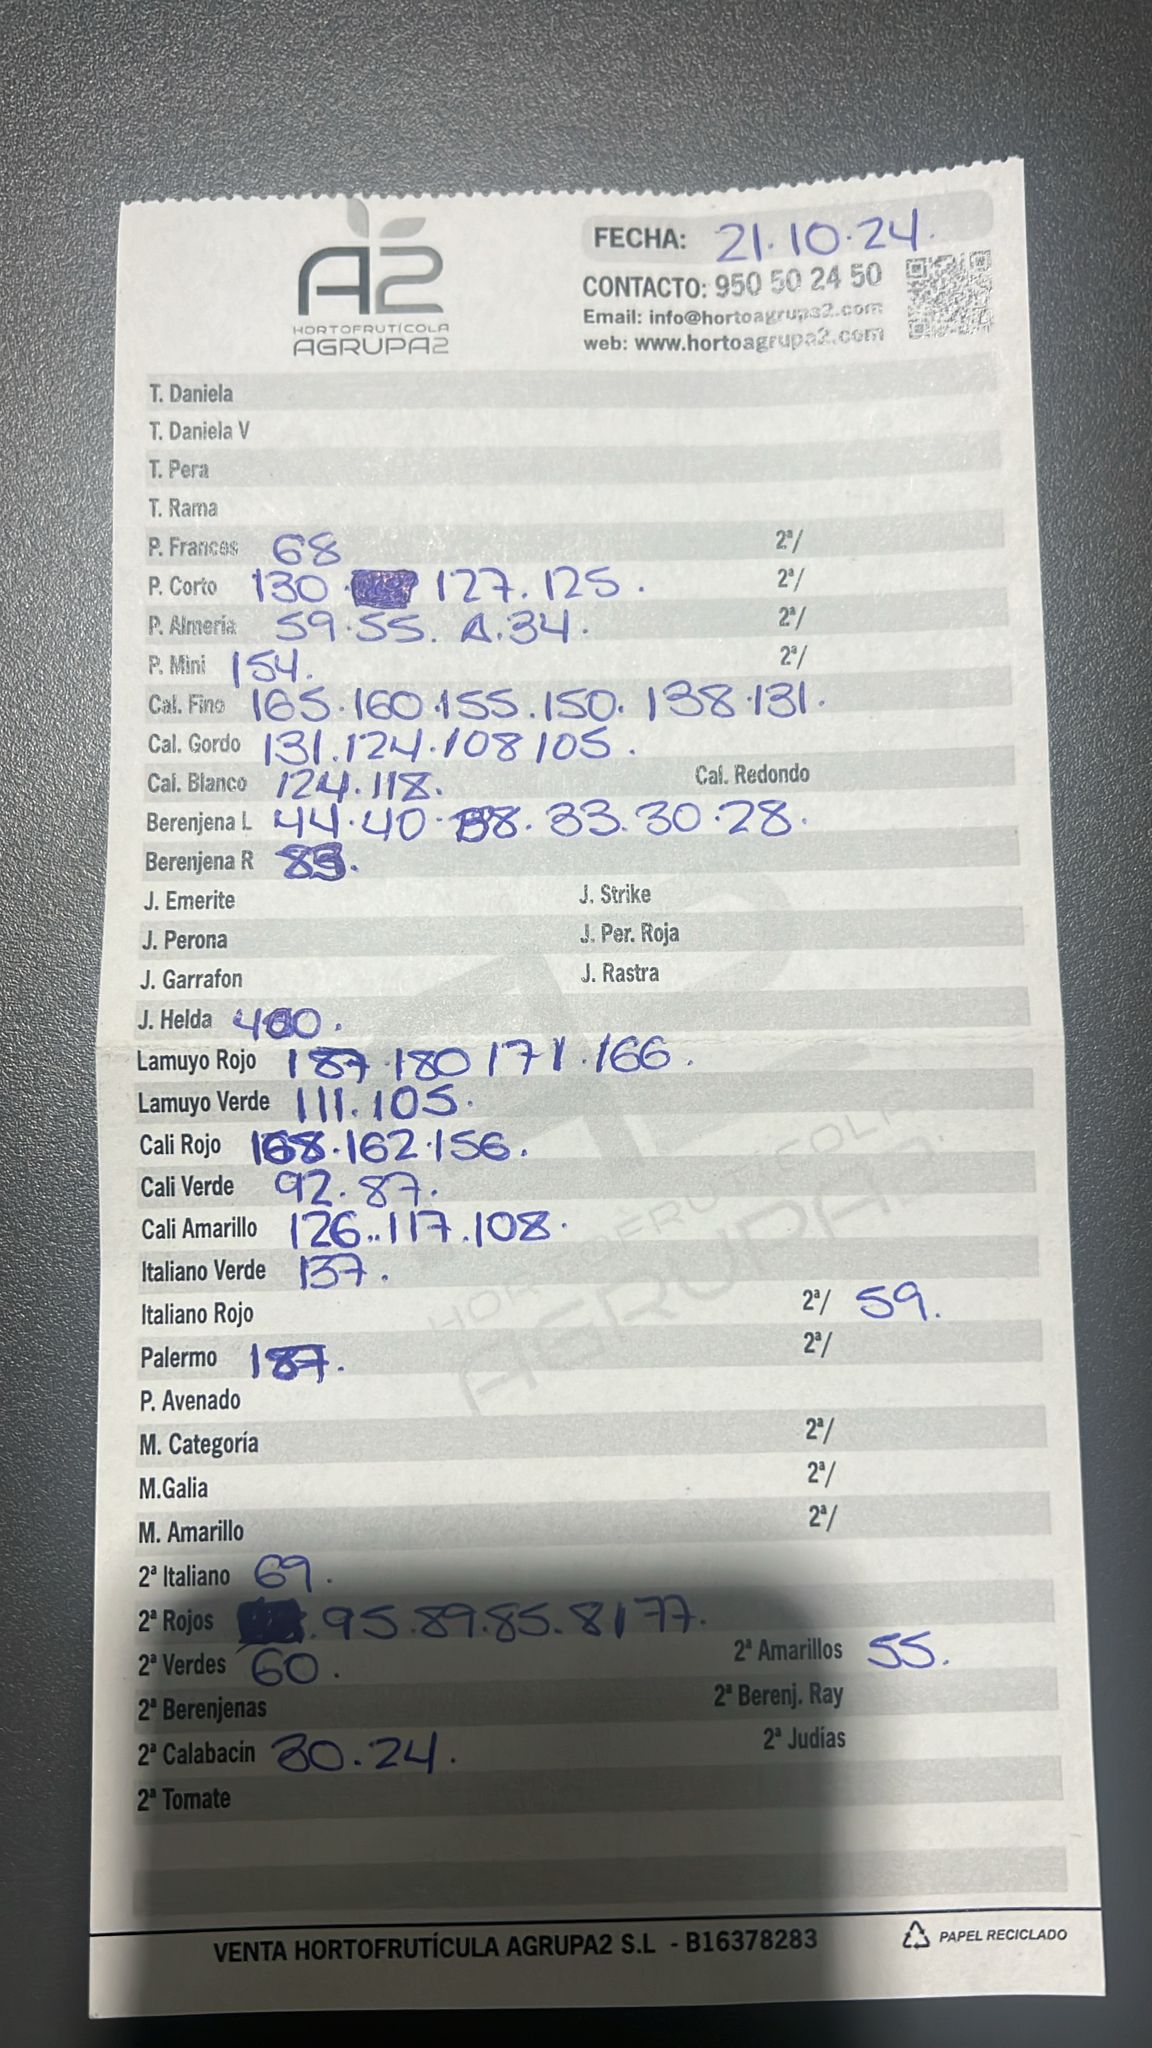 A2
HORTOFRUTÍCOLA
AGRUPA2
FECHA: 21.10.24.
CONTACTO: 950 50 24 50
Email: info@hortoagrupa2.com
web: www.hortoagrupa2.com
T. Daniela
T. Daniela V
T. Pera
T. Rama
P. Frances 68 2ª/
P. Corto 130. 127. 125. 2ª/
P. Almería 59.55. A.34. 2ª/
P. Mini 154. 2ª/
Cal. Fino 165.160.155.150.138.131.
Cal. Gordo 131.124.108 105.
Cal. Blanco 124.118. Cal. Redondo
Berenjena L 44.40.38.33.30.28.
Berenjena R 83.
J. Emerite J. Strike
J. Perona J. Per. Roja
J. Garrafon J. Rastra
J. Helda 400.
Lamuyo Rojo 187.180 171.166.
Lamuyo Verde 111.105.
Cali Rojo 168.162.156.
Cali Verde 92.87.
Cali Amarillo 126..117.108.
Italiano Verde 137.
Italiano Rojo 2ª/ 59.
Palermo 187. 2ª/
P. Avenado
M. Categoría 2ª/
M.Galia 2ª/
M. Amarillo 2ª/
2ª Italiano 69.
2ª Rojos .95.89.85.81 77.
2ª Verdes 60. 2ª Amarillos 55.
2ª Berenjenas 2ª Berenj. Ray
2ª Calabacín 30.24. 2ª Judías
2ª Tomate
VENTA HORTOFRUTÍCULA AGRUPA2 S.L - B16378283 PAPEL RECICLADO